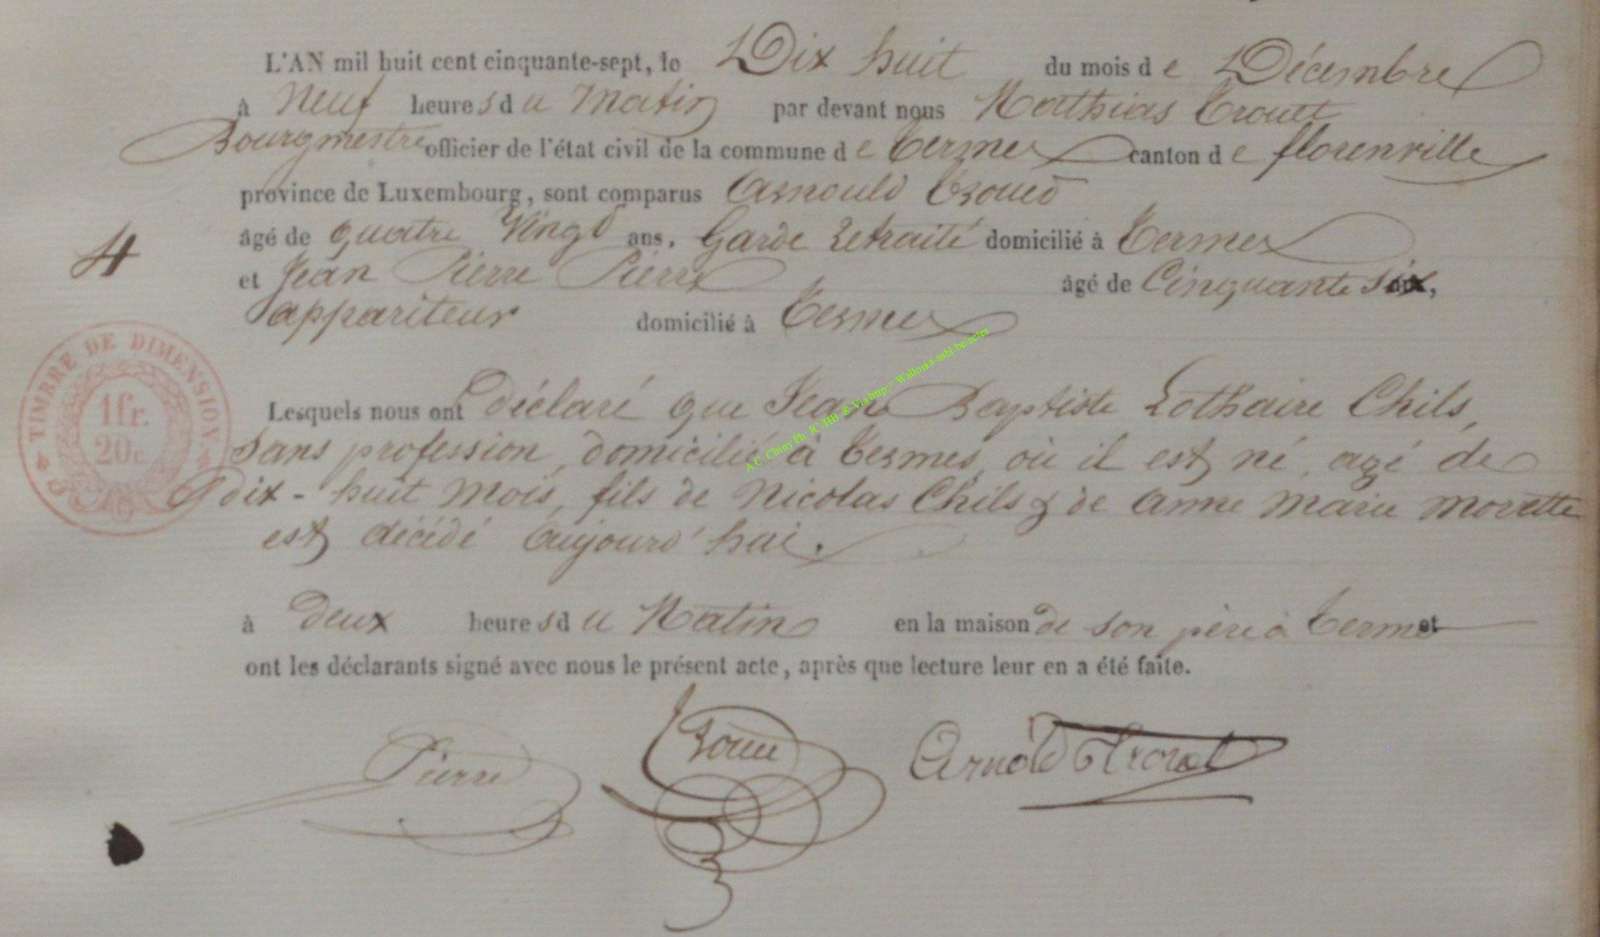 L'AN mil huit cent cinquante-sept, le Dix huit du mois de Décembre
à Neuf heures du Matin par devant nous Mathias Trouet
Bourgmestre officier de l'état civil de la commune de Termes canton de florenville
province de Luxembourg, sont comparus Arnould Troued
âgé de quatre Vingt ans, Garde retraité domicilié à Termes
4
et Jean Pierre Pierre âgé de Cinquante six,
appariteur domicilié à Termes
TIMBRE DE DIMENSION
1fr.
20c
Lesquels nous ont déclaré que Jean Baptiste Lothaire Chils,
sans profession, domicilié à Termes, où il est né, agé de
dix-huit mois, fils de Nicolas Chils & de Anne Marie Morette
est décédé aujourd'hui.
à Deux heures du Matin en la maison de son père à Termes et
ont les déclarants signé avec nous le présent acte, après que lecture leur en a été faite.
Pierre Arnold Trouet